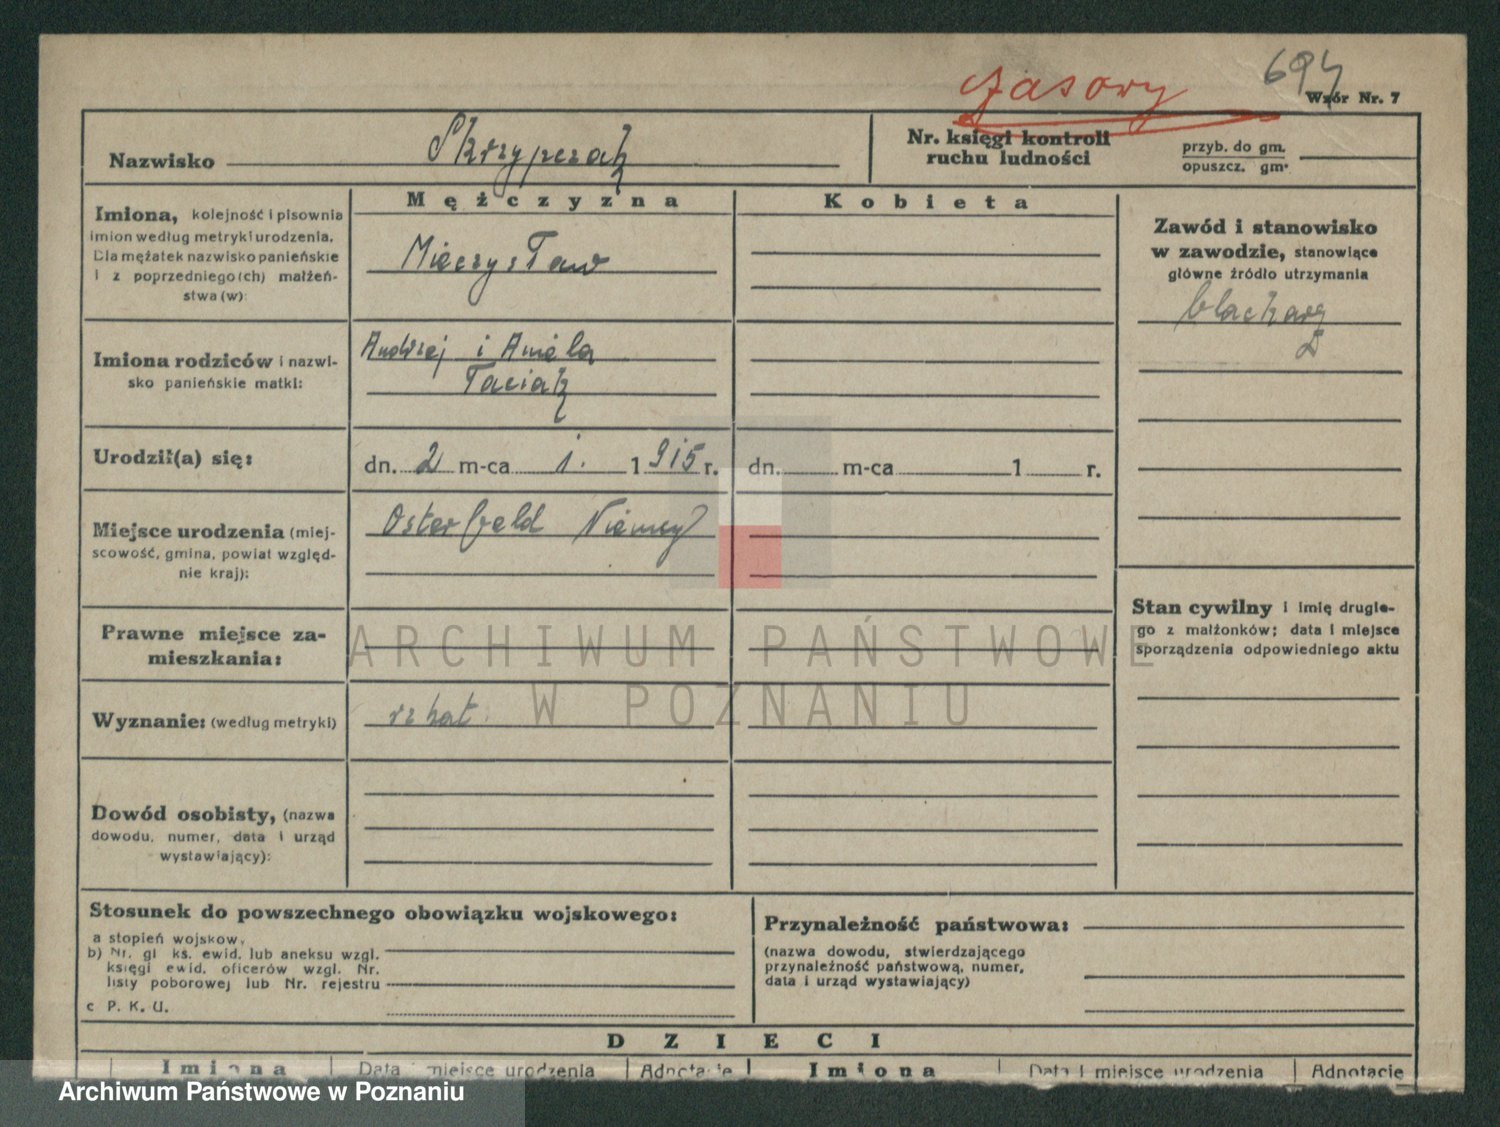 czasowy 694
Wzór Nr. 7
Nazwisko Skrzypczak
Nr. księgi kontroli
ruchu ludności
przyb. do gm.
opuszcz. gm.
Mężczyzna
Kobieta
Imiona, kolejność i pisownia
imion według metryki urodzenia.
Dla mężatek nazwisko panieńskie
i z poprzedniego(ch) małżeń-
stwa (w):
Mieczysław
Zawód i stanowisko
w zawodzie, stanowiące
główne źródło utrzymania
blacharz
Imiona rodziców i nazwi-
sko panieńskie matki:
Andrzej i Aniela
Taciak
Urodził(a) się:
dn. 2 m-ca 1. 1915 r.
dn. m-ca 1 r.
Miejsce urodzenia (miej-
scowość, gmina, powiat względ-
nie kraj):
Osterfeld Niemcy
Prawne miejsce za-
mieszkania:
Stan cywilny i imię drugie-
go z małżonków; data i miejsce
sporządzenia odpowiedniego aktu
ARCHIWUM PAŃSTWOWE
W POZNANIU
Wyznanie: (według metryki)
rz kat.
Dowód osobisty, (nazwa
dowodu, numer, data i urząd
wystawiający):
Stosunek do powszechnego obowiązku wojskowego:
a stopień wojskow.
b) Nr. gl ks. ewid. lub aneksu wzgl.
księgi ewid. oficerów wzgl. Nr.
listy poborowej lub Nr. rejestru
c P. K. U.
Przynależność państwowa:
(nazwa dowodu, stwierdzającego
przynależność państwową, numer,
data i urząd wystawiający)
DZIECI
Imiona Data i miejsce urodzenia Adnotacje Imiona Data i miejsce urodzenia Adnotacje
Archiwum Państwowe w Poznaniu